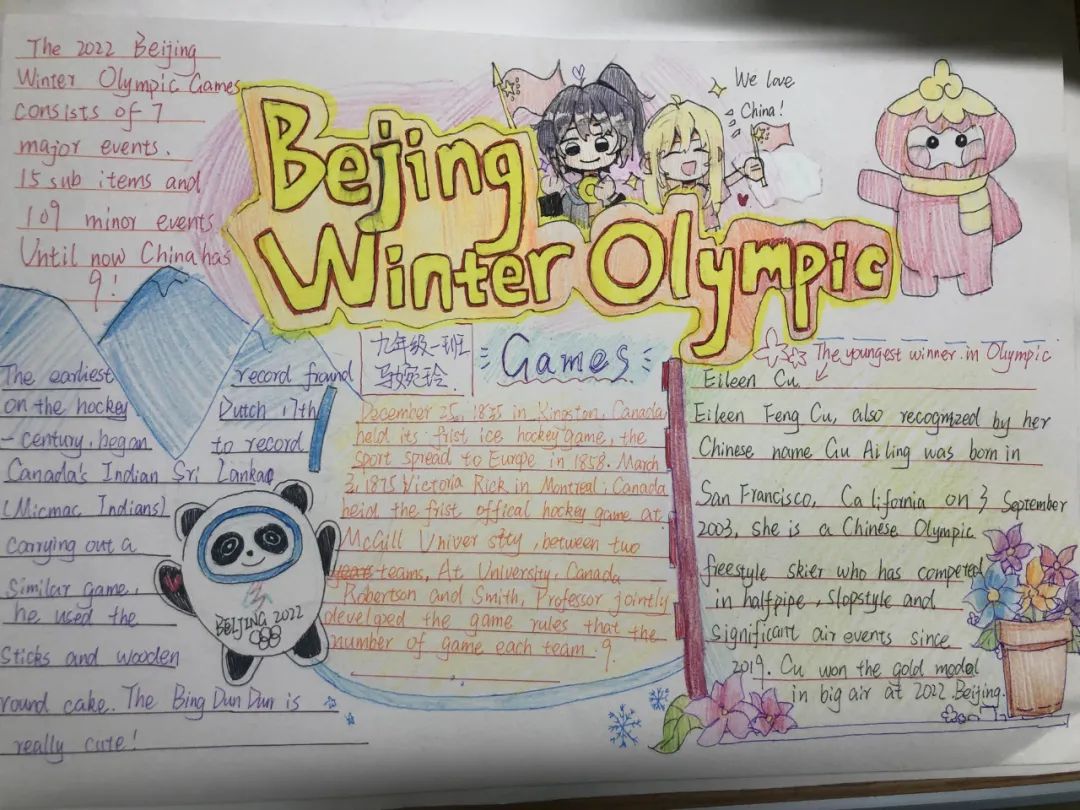 The 2022 Beijing
Winter Olympic Games
consists of 7
major events.
15 sub items and
109 minor events
Until now China has
9!
Beijing
Winter Olympic
Games
We love
China!
九年级一班
马婉玲
The earliest record fround
on the hockey Dutch 17th
-century, began to record
Canada's Indian Sri Lankao
(Micmac Indians)
Carrying out a
Similar game,
he used the
Sticks and wooden
round cake. The Bing Dun Dun is
really cute!
BEIJING 2022
December 25, 1835 in Kingston, Canada
held its frist ice hockey game, the
sport spread to Europe in 1858. March
3, 1875 Victoria Rick in Montreal, Canada
heid the frist offical hockey game at
McGill University, between two
teams, At University, Canada
Robertson and Smith, Professor jointly
develped the game rules that the
number of game each team 9.
The youngest winner in Olympic
Eileen Cu
Eileen Feng Cu, also recognized by her
Chinese name Gu Ailing was born in
San Francisco, California on 3 September
2003, she is a Chinese Olympic
freestyle skier who has competed
in halfpipe, slopstyle and
significant air events since
2019. Cu won the gold model
in big air at 2022 Beijing.